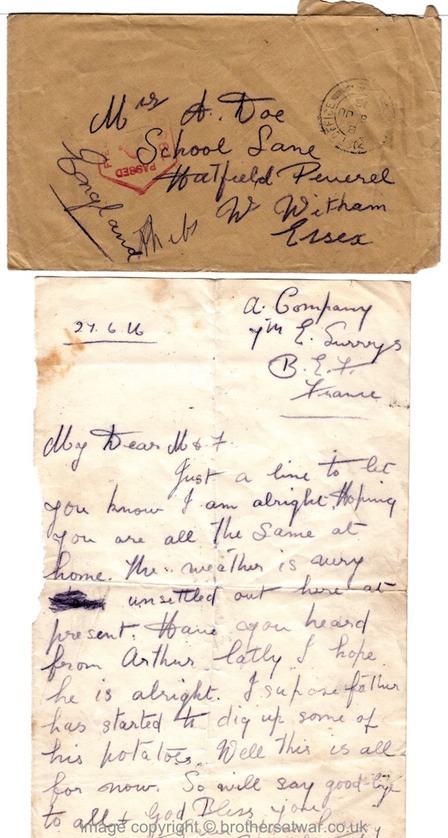 Mrs A. Doe
School Lane
Hatfield Peverel
Nr Witham
Essex
England
PASSED
OFFICE
27.6.16
A. Company
7th E. Surrys
B.E.F.
France
My Dear M & F.
Just a line to let
you know I am alright Hoping
you are all the same at
home. The weather is very
unsettled out here at
present. Have you heard
from Arthur latly I hope
he is alright. I supose father
has started to dig up some of
his potatoes. Well this is all
for now. So will say good-bye
to all & God Bless you
Image copyright © brothersatwar.co.uk